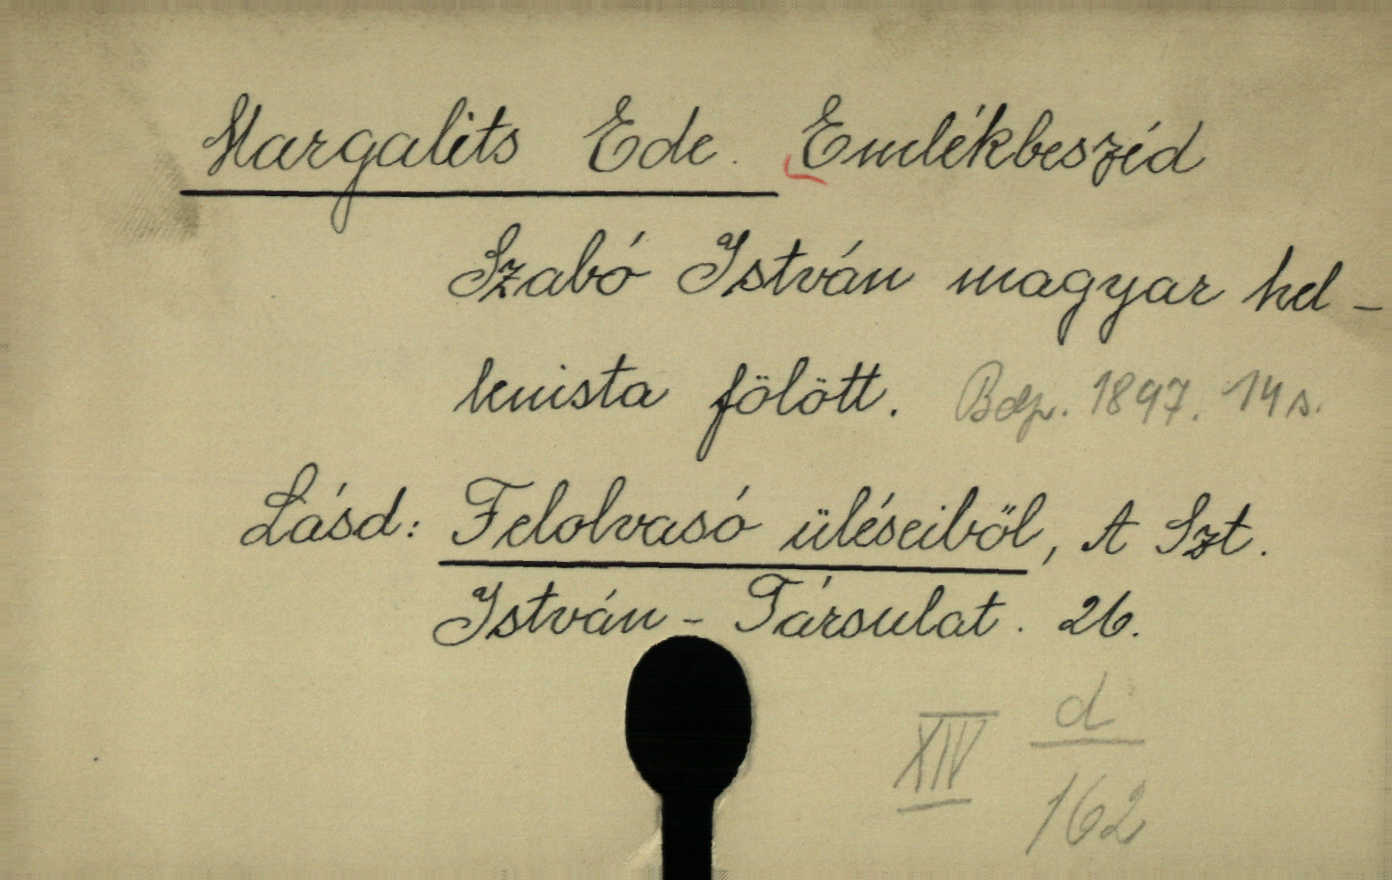 Margalits Ede. Emlékbeszéd
Szabó István magyar hel-
lenista fölött. Bdp. 1897. 14 s.
Lásd: Felolvasó üléseiből, A Szt.
István-Társulat. 26.
XIV d/162